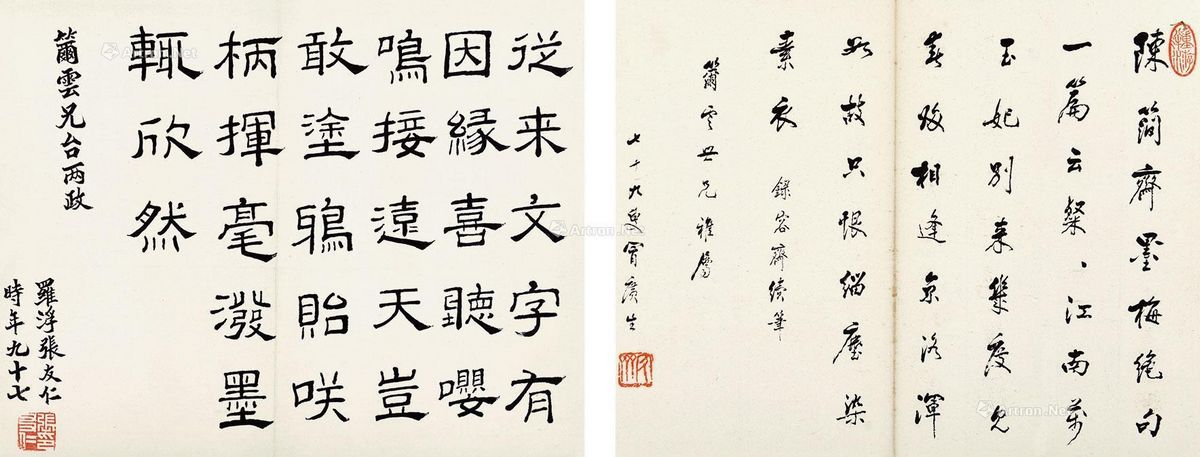 陳簡齋墨梅絕句
一篇云粲〻江南萬
玉妃別来幾度見
春歸相逢京洛渾
如故只恨緇塵染
素衣 錄容齋續筆
籋雲世兄雅屬
七十九叟冒廣生
從来文字有
因緣喜聽嚶
鳴接遠天豈
敢塗鴉貽咲
柄揮毫潑墨
輒欣然
籋雲兄台兩政
羅浮張友仁
時年九十七
Artron.Net
Artron.Net
Artron.Net
Artron.Net